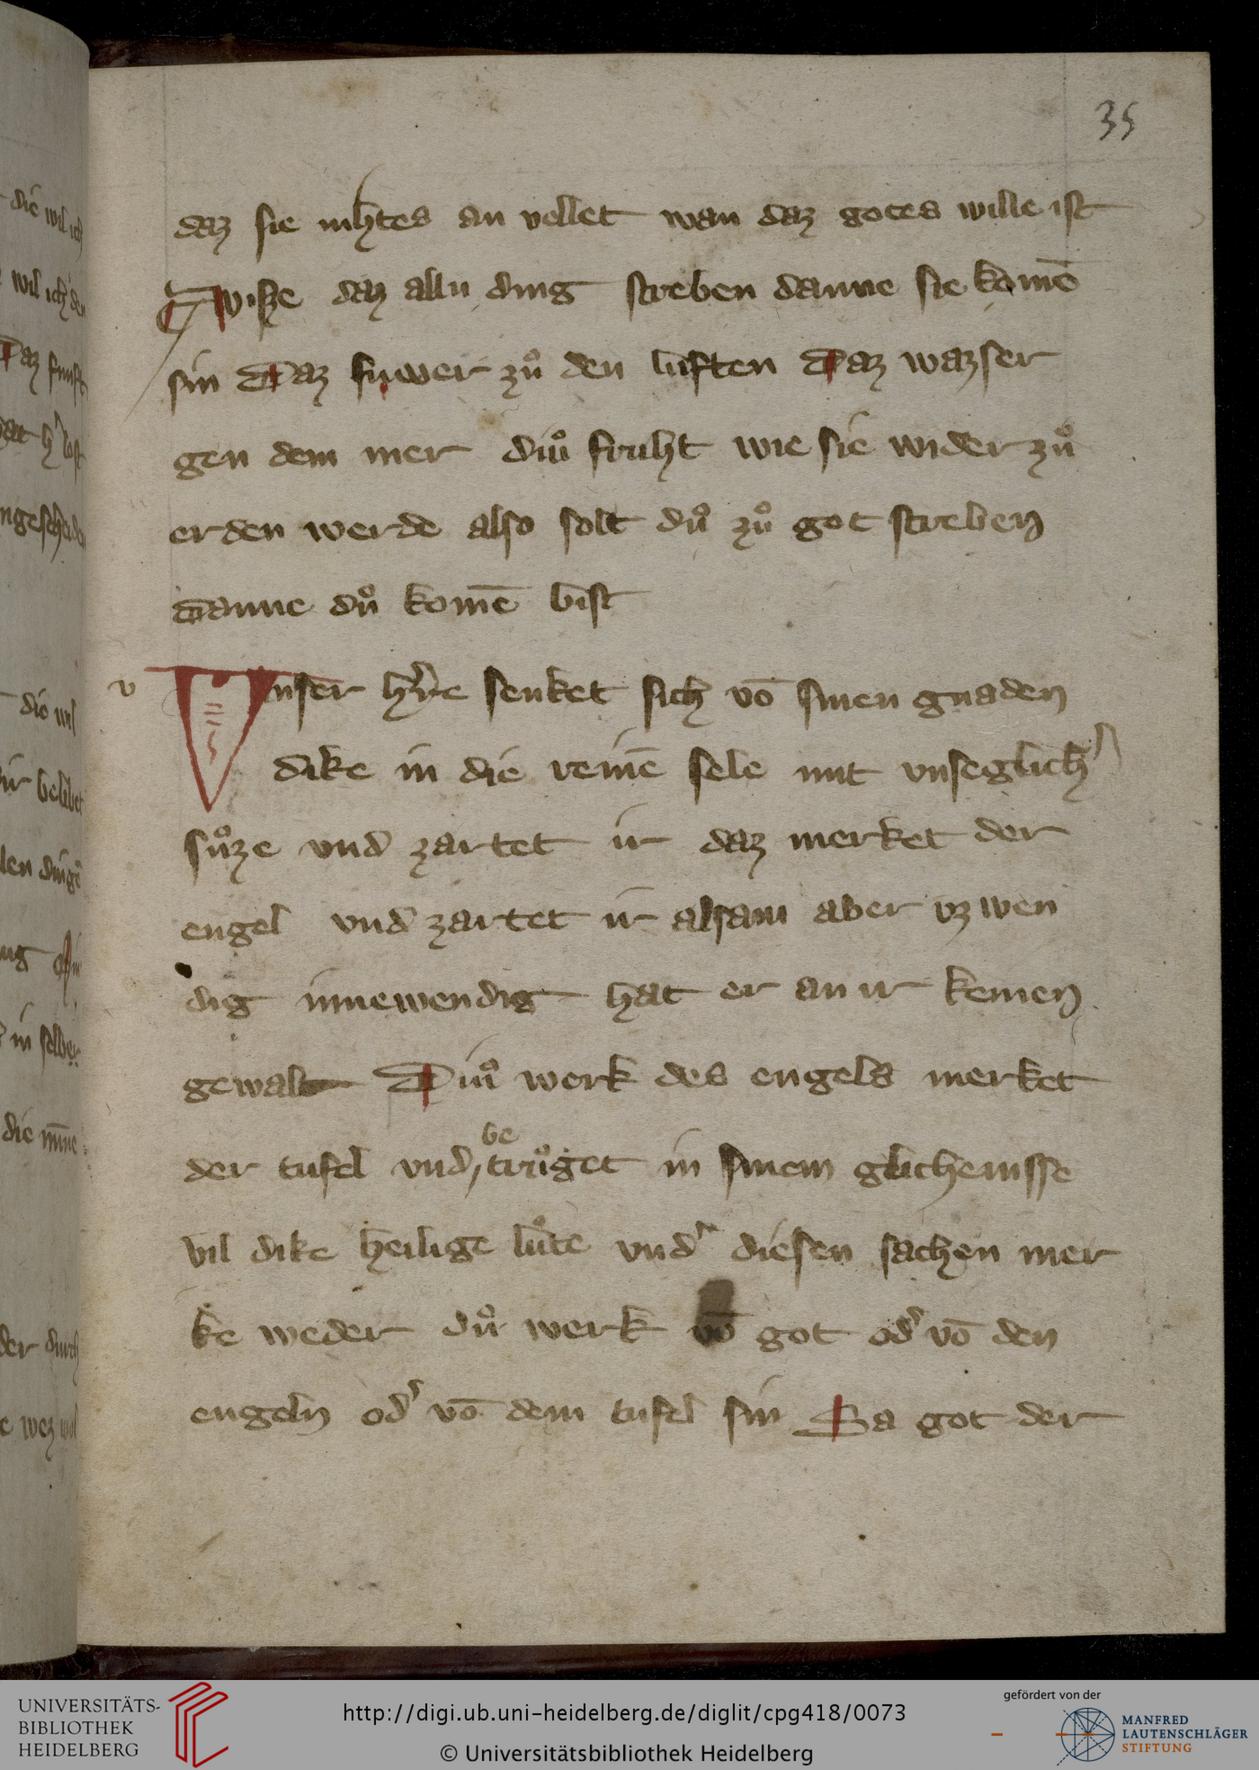 35
daz sie nihtes an vellet wan daz gotes wille ist
Wisze daz allu ding streben danne sie komē
sin Daz fuwer zuͦ den luften Daz wazser
gen dem mer diuͦ fruht wie sie wider zuͦ
erden werde also solt duͦ zuͦ got streben
danne duͦ komē bist
v
Vnser hr̄re senket sich vō sinen gnaden
dike in die reinē sele mit vnseglich͛
suͦze vnd zartet ir daz merket der
engel vnd zartet ir alsam aber vzwen
dig innewendig hat er an ir keinen
gewalt Diuͦ werk des engels merket
be
der tufel vnd truͦget in sinem glichenisse
vil dike heilige luͦte vnd͛ diesen sachen mer
ke weder duͦ werk vō got od͛ vō den
engeln od͛ vō dem tufel sin Sa got der
die wil ich
die wil
in selber
die minne
UNIVERSITÄTS-
BIBLIOTHEK
HEIDELBERG
http://digi.ub.uni-heidelberg.de/diglit/cpg418/0073
© Universitätsbibliothek Heidelberg
gefördert von der
MANFRED
LAUTENSCHLÄGER
STIFTUNG